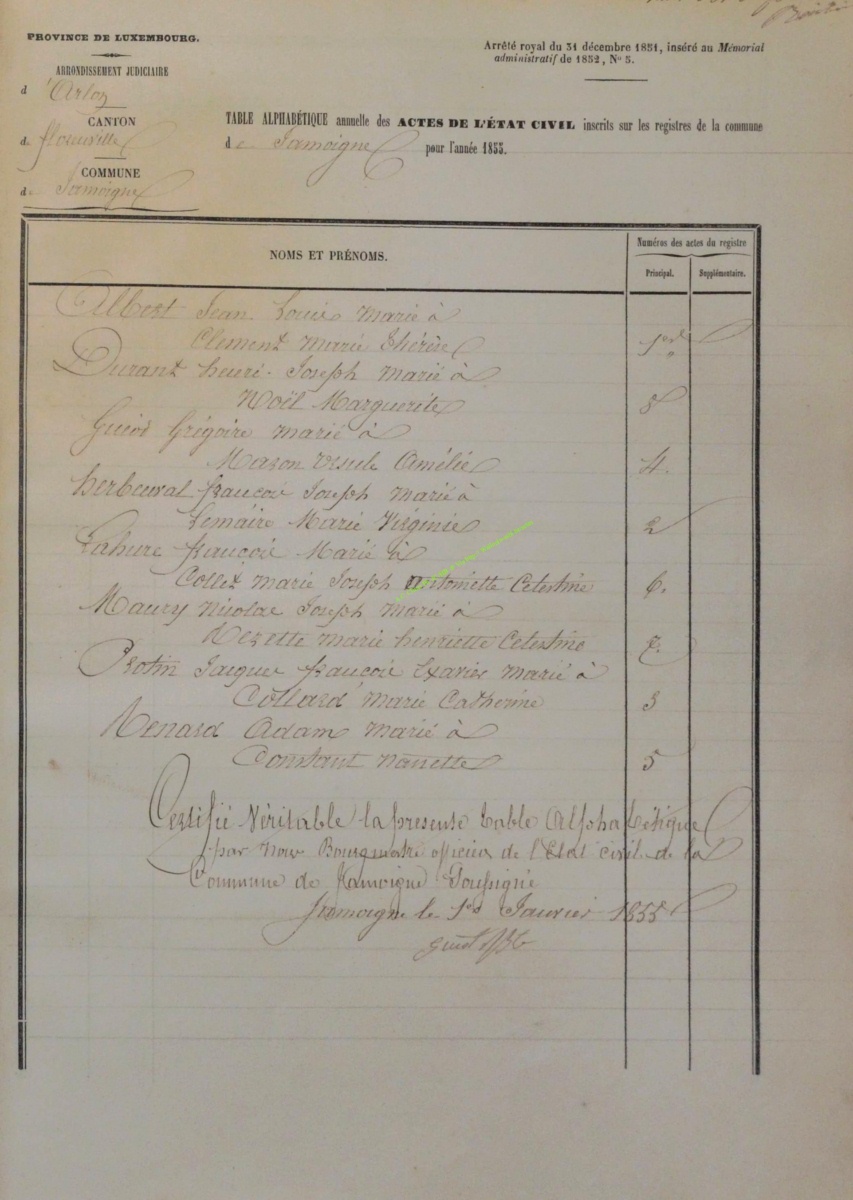 PROVINCE DE LUXEMBOURG.
ARRONDISSEMENT JUDICIAIRE
d'Arlon
CANTON
de florenville
COMMUNE
de Jamoigne
Arrêté royal du 31 décembre 1851, inséré au Mémorial
administratif de 1852, N° 5.
TABLE ALPHABÉTIQUE annuelle des ACTES DE L'ÉTAT CIVIL inscrits sur les registres de la commune
de Jamoigne pour l'année 1855.
NOMS ET PRÉNOMS.
Numéros des actes du registre
Principal. Supplémentaire.
Albert Jean Louis Marié à
Clement Marie Thérèse 1er
Durant henri Joseph Marié à
Noël Marguerite 8
Guiot Grégoire Marié à
Mason Ursule Amélie 4.
herbeuval françois Joseph Marié à
Lemaire Marie Virginie 2
Lahure françois Marié à
Collet Marie Joseph Antoinette Celestine 6.
Maury Nicolas Joseph Marié à
Rezette Marie henriette Celestine 7.
Protin Jacques françois Exavier Marié à
Collard Marie Catherine 3
Renard Adam Marié à
Constant Nanette 5
Certifié Véritable la presente table Alphabétique
par nous Bourgmestre officier de l'Etat civil de la
Commune de Jamoigne Soussigné
Jamoigne le 1er Janvier 1855